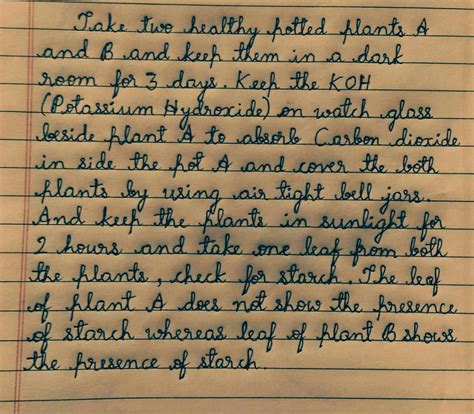 Take two healthy potted plants A
and B and keep them in a dark
room for 3 days. Keep the KOH
(Potassium Hydroxide) on watch glass
beside plant A to absorb Carbon dioxide
in side the pot A and cover the both
plants by using air tight bell jars.
And keep the plants in sunlight for
2 hours and take one leaf from both
the plants, check for starch. The leaf
of plant A does not show the presence
of starch whereas leaf of plant B shows
the presence of starch.